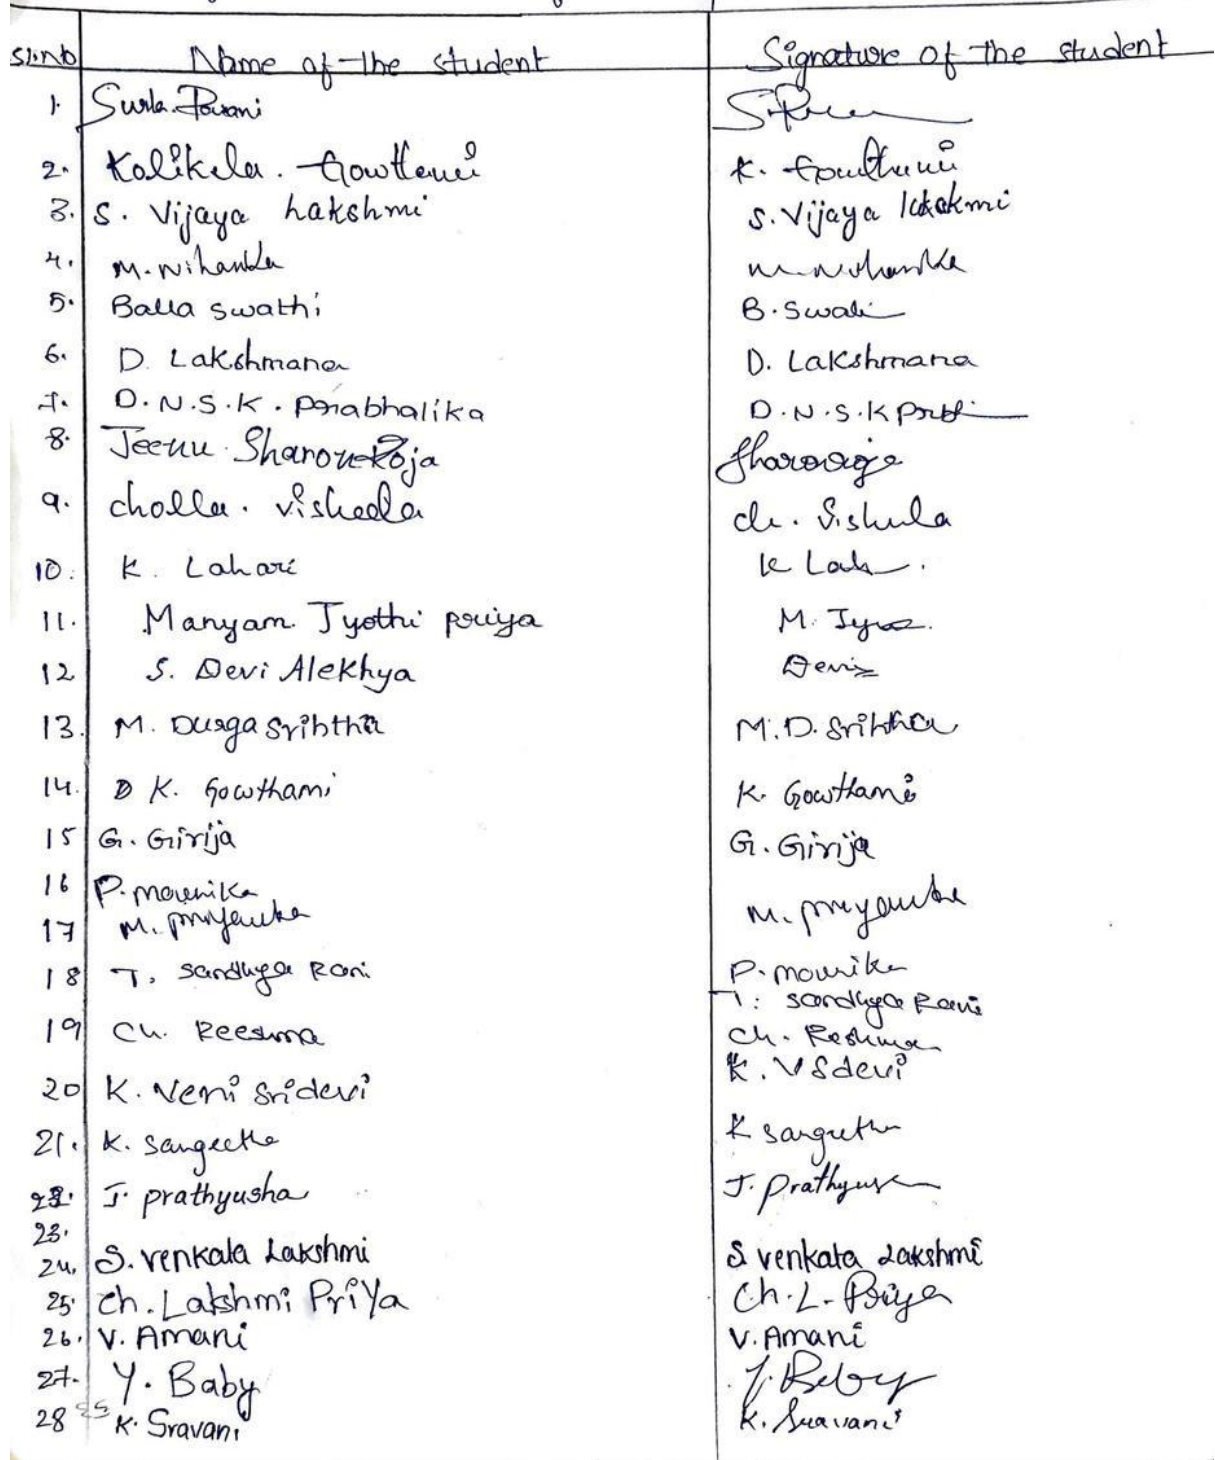 Sl.No Name of the student Signature of the student
1. Surla. Pavani
2. Kolikela. Gowthami K. Gowthami
3. S. Vijaya Lakshmi S. Vijaya Lakshmi
4. M. Niharika M. Niharika
5. Balla swathi B. Swathi
6. D. Lakshmana D. Lakshmana
7. D.N.S.K. Prabhalika D.N.S.K
8. Jeenu Sharon Roja Sharonroja
9. Cholla. Visheela Ch. Vishula
10. K. Lahari K Lah
11. Manyam Jyothi priya M. Jyo
12 S. Devi Alekhya Devi
13. M. Durga Sri M.D.
14. K. Gowthami K. Gowthami
15 G. Girija G. Girija
16 P. mounika
17 M. priyanka M. priyanka
18 T. Sandhya Rani P. mounika
T. Sandhya Rani
19 Ch. Reeshma Ch. Reshma
K. V Sdevi
20 K. Veni Sridevi
21. K. Sangeetha K Sangeetha
22. J. prathyusha J. prathyusha
23.
24. S. venkata Lakshmi S venkata Lakshmi
25. Ch. Lakshmi Priya Ch. L. Priya
26. V. Amani V. Amani
27. Y. Baby Y. Baby
28 K. Sravani K. Sravani